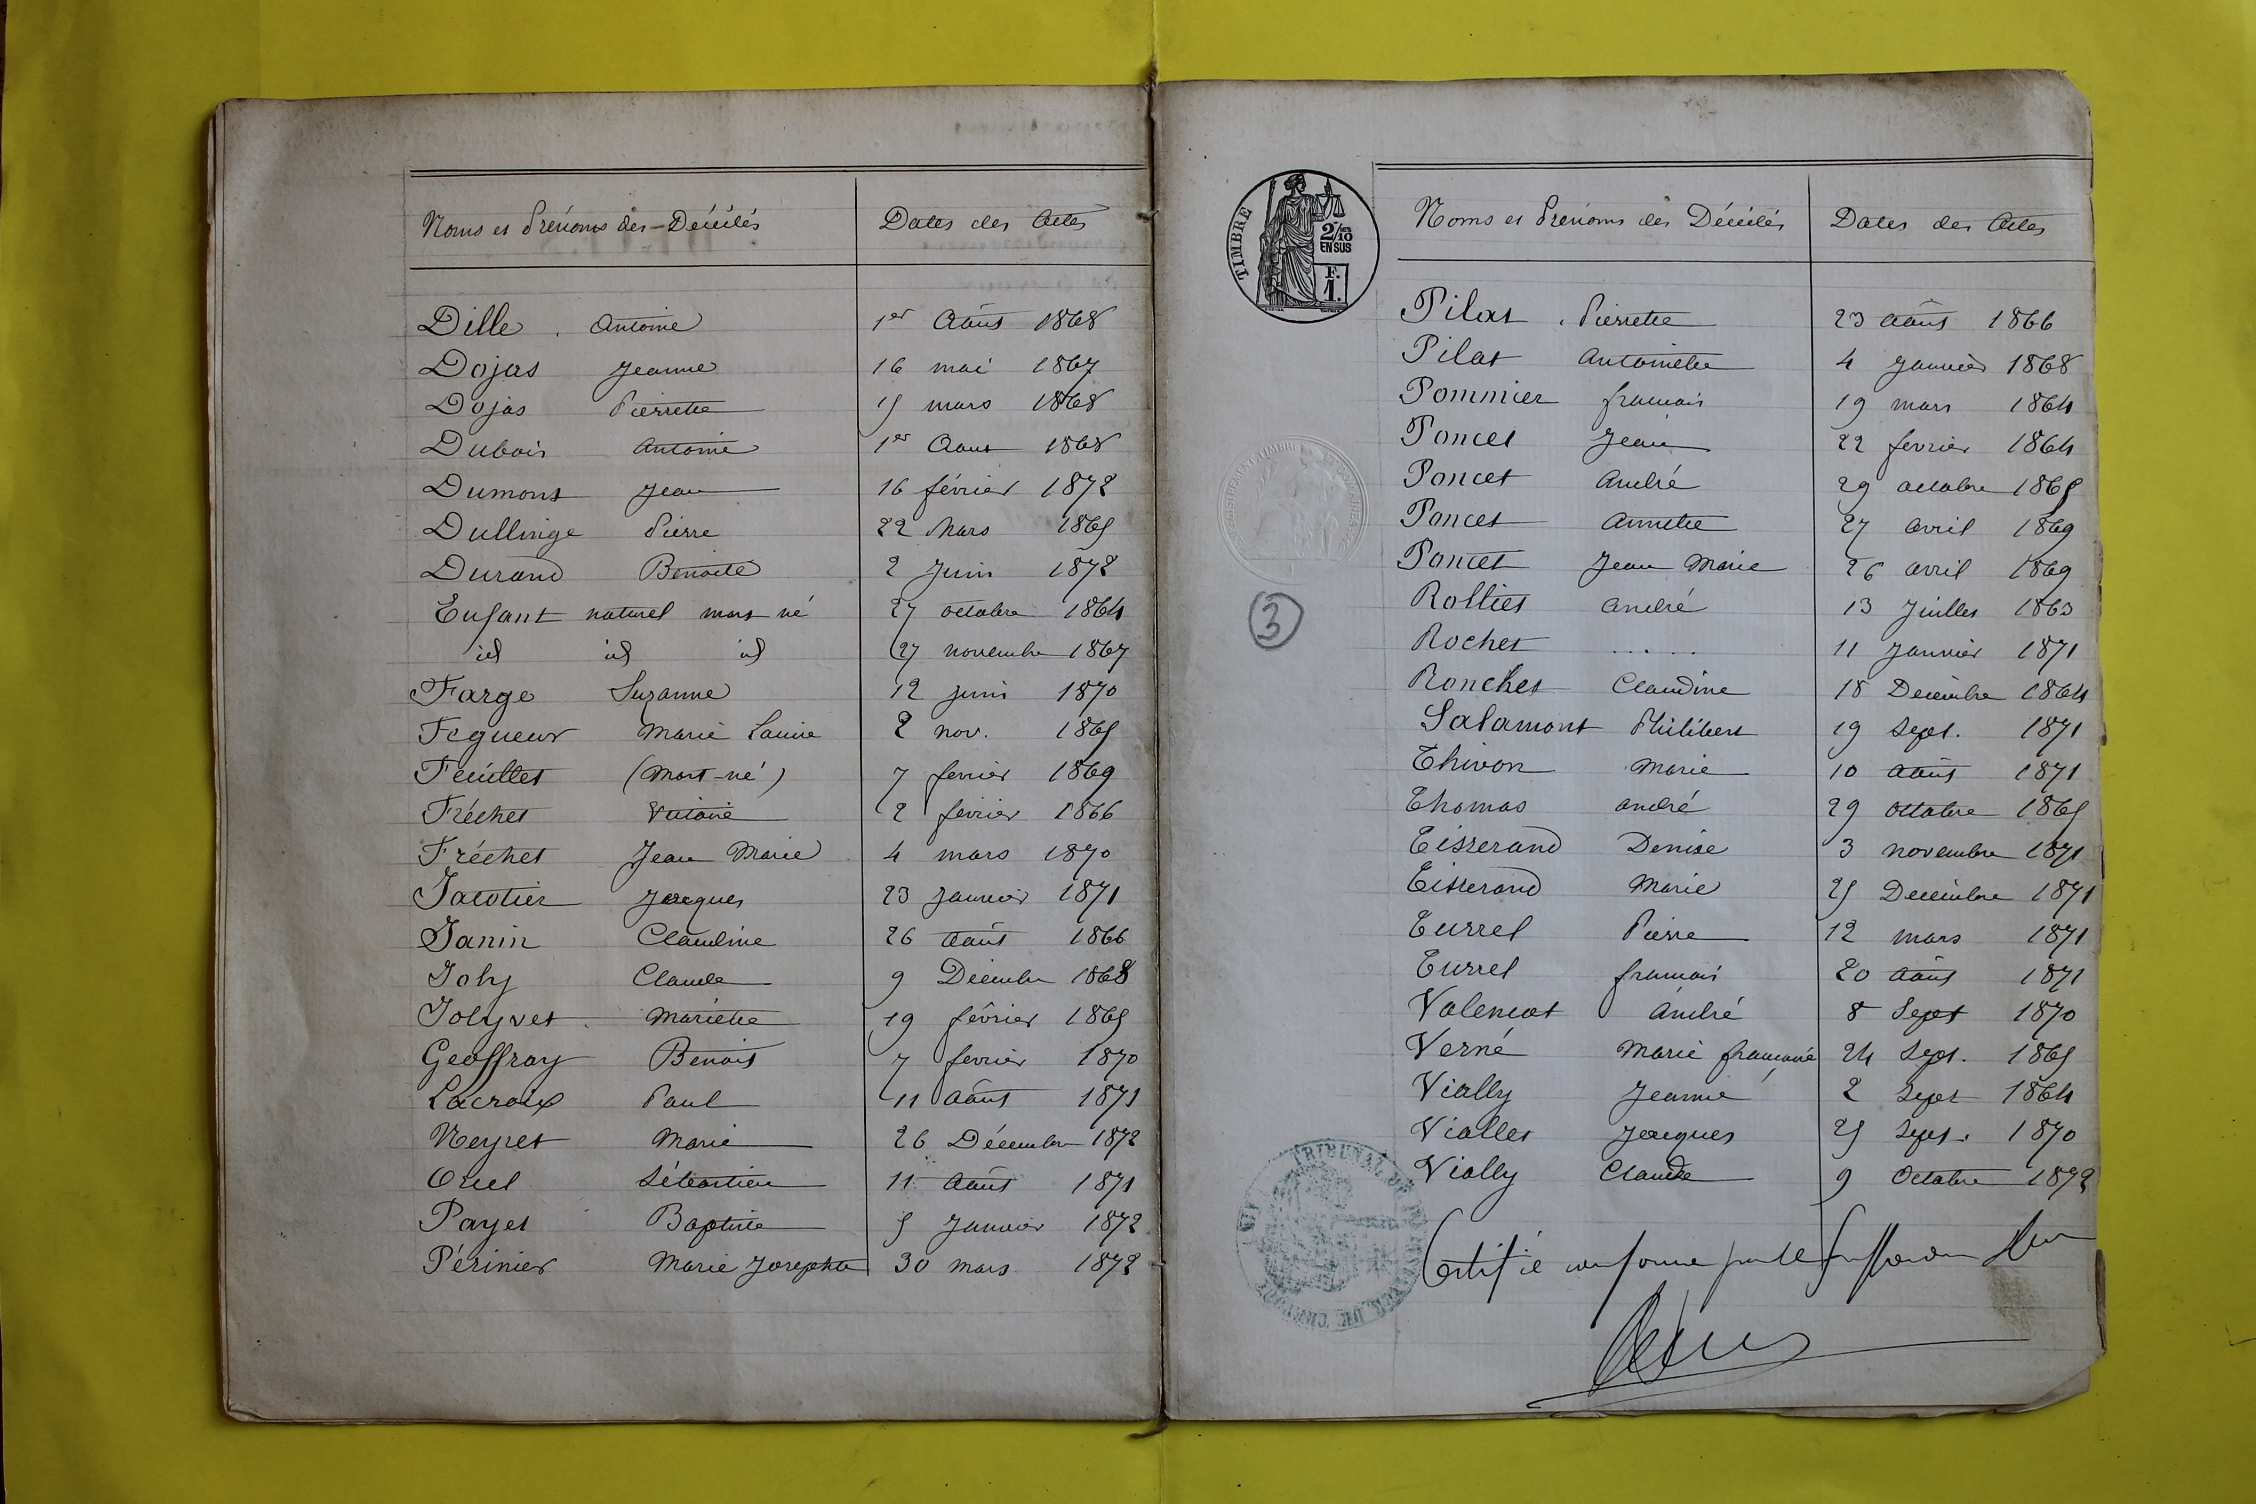 Noms et Prénoms des Décédés Dates des Actes
Dille Antoine 1er Août 1868
Dojas Jeanne 16 mai 1867
Dojas Pierrette 15 mars 1868
Dubois Antoine 1er Aout 1868
Dumont Jean 16 février 1872
Dullinge Pierre 22 Mars 1865
Durand Benoite 2 Juin 1872
Enfant naturel mort né 27 octobre 1864
id id id 27 novembre 1867
Farge Suzanne 12 juin 1870
Fegueur Marie Louise 2 nov. 1865
Feuillet (Mort-né) 7 fevrier 1869
Fréchet Victoire 2 février 1866
Fréchet Jean Marie 4 mars 1870
Jacotier Jacques 23 Janvier 1871
Janin Claudine 26 Août 1866
Joly Claude 9 Décembre 1868
Jolyvet Mariette 19 février 1865
Geoffray Benoit 7 fevrier 1870
Lacroix Paul 11 Août 1871
Neyret Marie 26 Décembre 1872
Oriel Sébastien 11 Août 1871
Payet Baptiste 5 Janvier 1872
Périnier Marie Josephte 30 mars 1872
TIMBRE
2/10
EN SUS
F.
1.
3
Noms et Prénoms des Décédés Dates des Actes
Pilat Pierrette 23 Août 1866
Pilat Antoinette 4 Janvier 1868
Pommier françois 19 mars 1864
Poncet Jean 22 fevrier 1864
Poncet André 29 octobre 1865
Poncet Annette 27 avril 1869
Poncet Jean Marie 26 avril 1869
Rolliet André 13 Juillet 1863
Rochet ..... 11 Janvier 1871
Ronchet Claudine 18 Décembre 1864
Salamont Philibert 19 Sept. 1871
Thivon Marie 10 Août 1871
Thomas André 29 Octobre 1865
Tisserand Denise 3 novembre 1871
Tisserand Marie 25 Décembre 1871
Turrel Pierre 12 mars 1871
Turrel françois 20 Août 1871
Valencot André 8 Sept 1870
Verné Marie françoise 24 Sept. 1865
Vially Jeanne 2 Sept 1864
Viallet Jacques 25 Sept. 1870
Vially Claude 9 Octobre 1872
Certifié conforme par le
TRIBUNAL